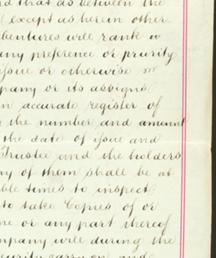 d that as between the
l except as herein other
bentures will rank
any preference or priority
issue or otherwise
pany or its assigns
n accurate register of
the number and amount
the date of issue and
Trustee and the holders
ny of them shall be at
ble times to inspect
to take Copies of or
ne or any part thereof
mpany will during the
curity carry on and